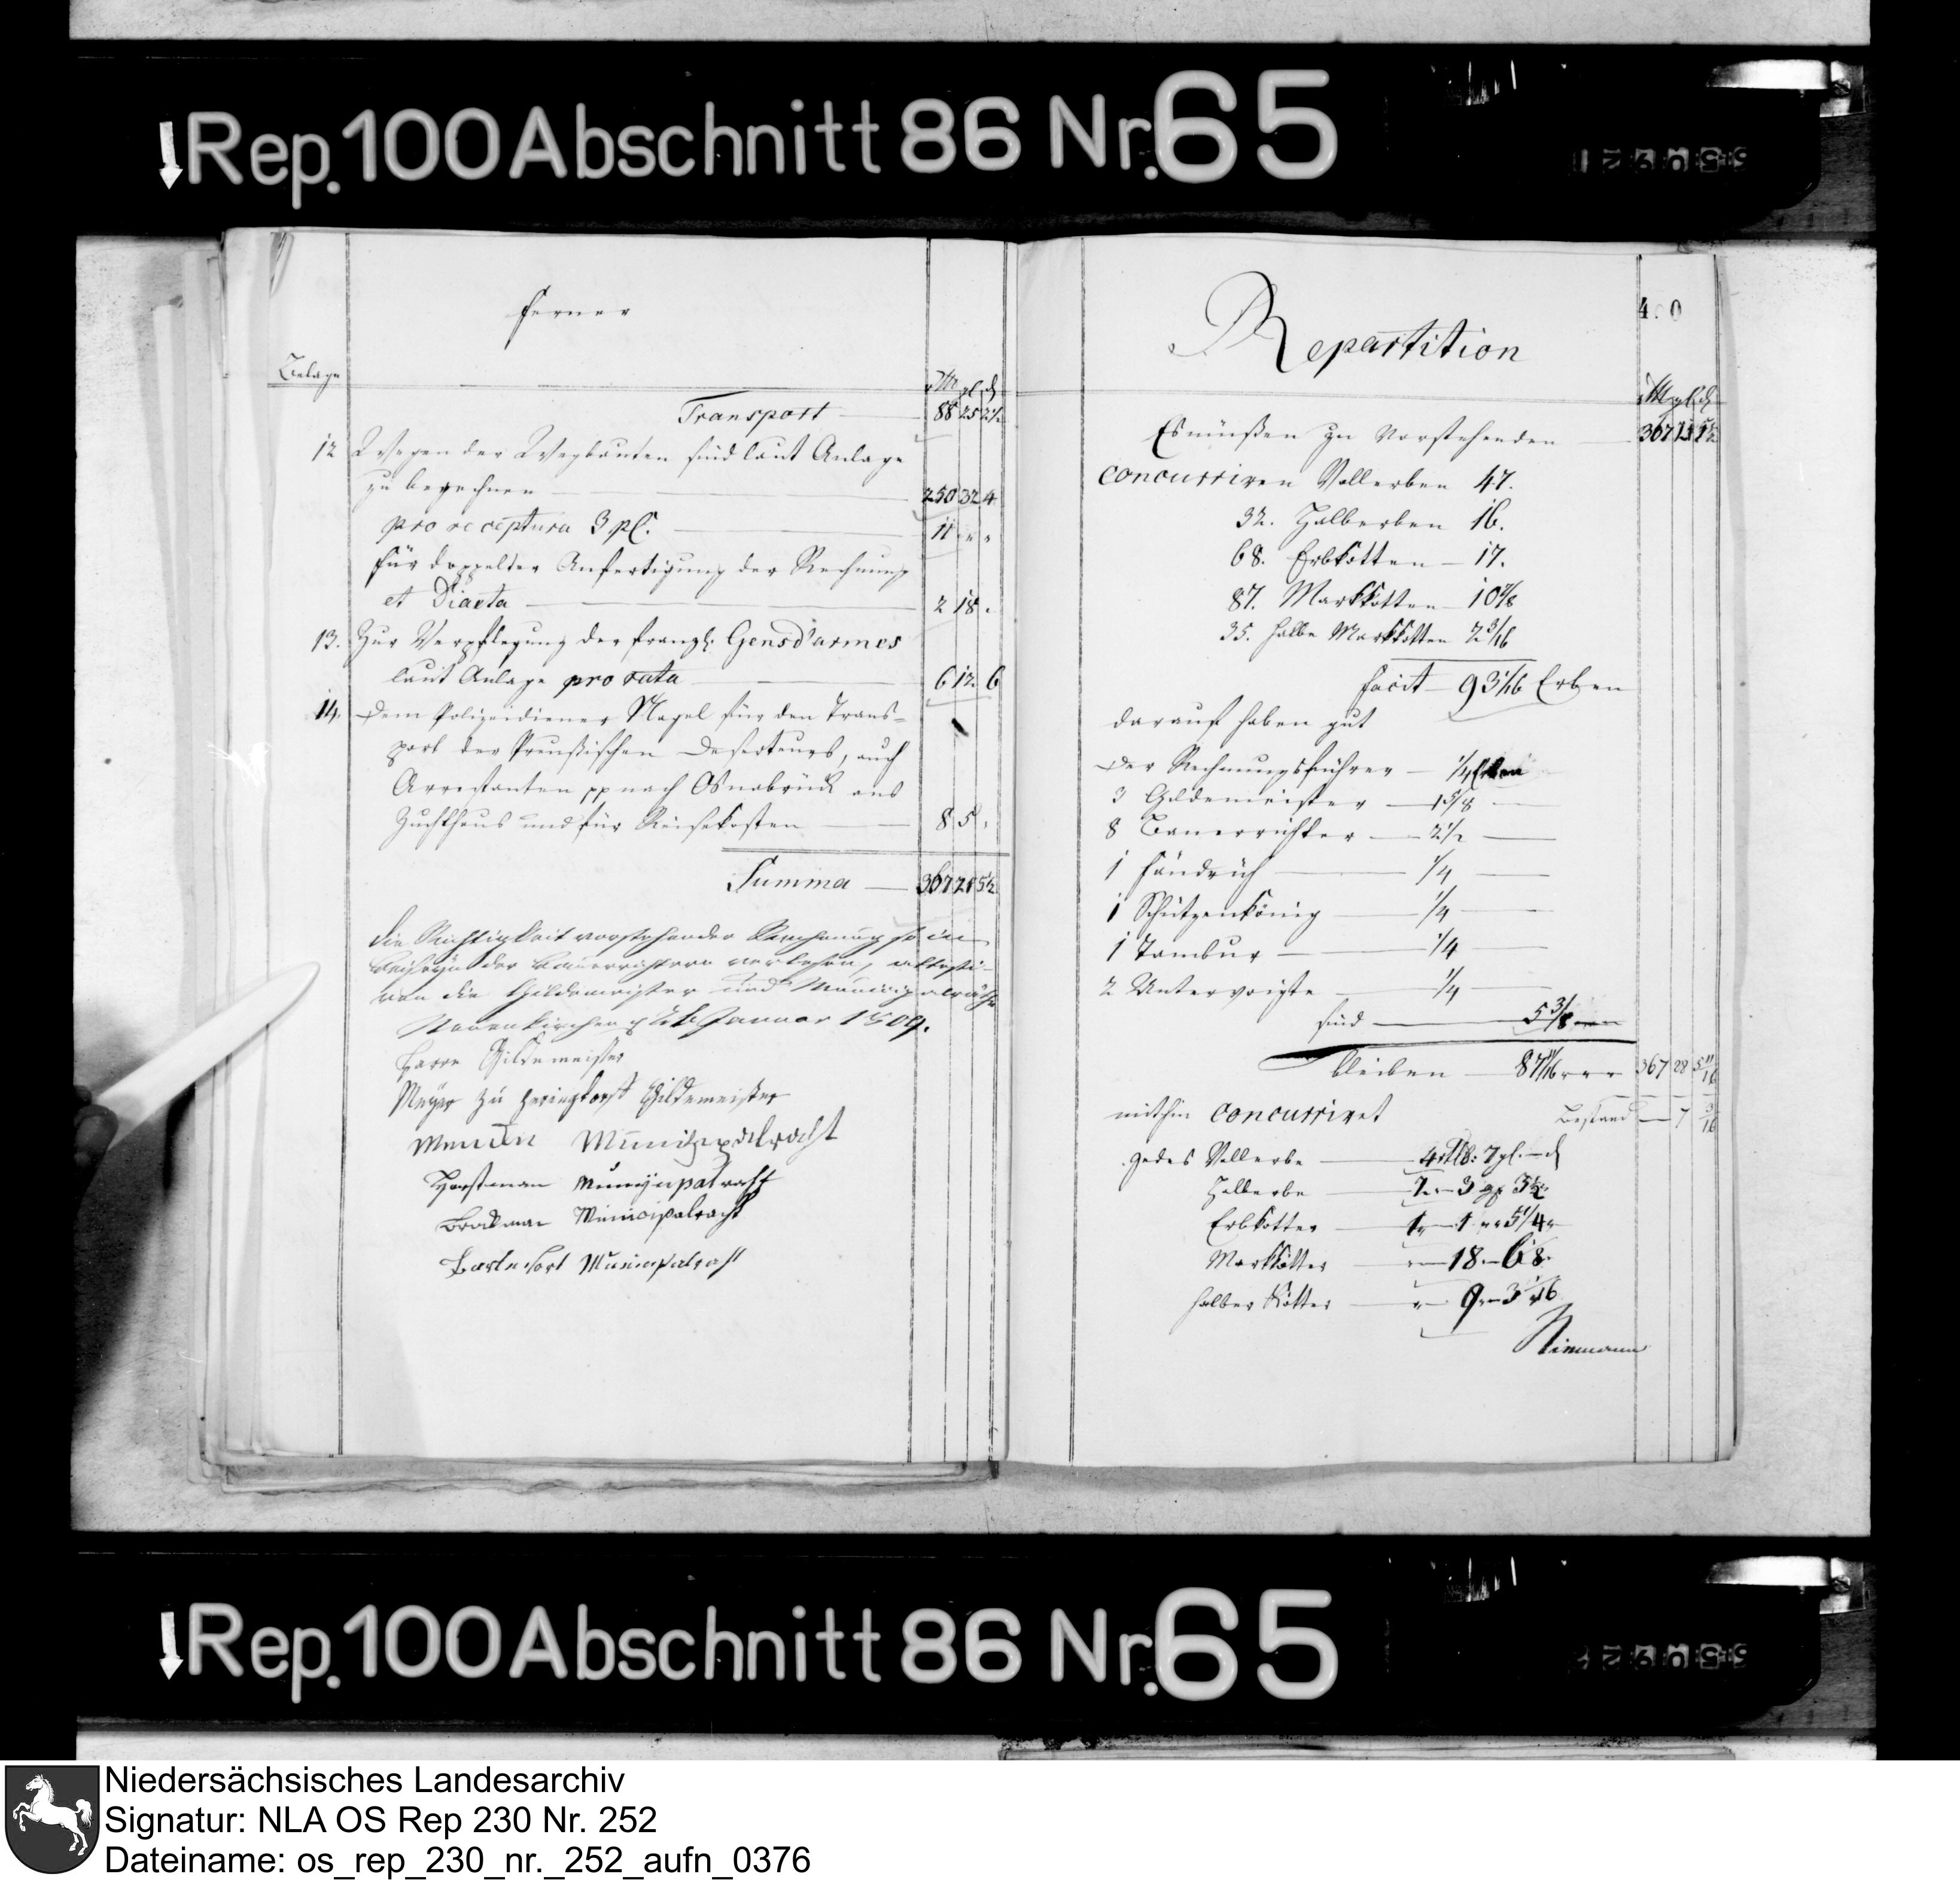 Rep. 100 Abschnitt 86 Nr. 65
ferner
Anlage
Transport — 88 25 2½
12 Wegen der Wegbauten sind laut Anlage
zu berechnen — 250 32 4
pro receptura 3 pC. — 11 " "
für doppelter Anfertigung der Rechnung
et Diaeta — 2 18 .
13. Zur Verpflegung der franz. Gensd'armes
laut Anlage pro rata — 6 12 6
14. Dem Polizeidiener Nagel für den Trans=
port der Preußischen Deserteurs, auch
Arrestanten pp nach Osnabrück ans
Zuchthaus und für Reisekosten — 8 5 .
Summa — 367 21 5½
die Richtigkeit vorstehender Rechnung so in
Beiseyn der Bauerrichtern verlesen, attesti-
ren die Gildemeister und Municipalräthe
Neuenkirchen Januar 1809.
Gildemeister
Meyer zu Gildemeister
Municipalrath
Horstman Municipalraht
Brockman Municipalraht
Municipalraht
400
Repartition
Es müßen zu Vorstehenden — 367 21 5½
concurriren Vollerben 47.
32. Halberben 16.
68. Erbkotten — 17.
87. Markkotten — 10⅞
35. halbe Markkotten 2 3/16
facit — 93 1/16 Erben
darauf haben gut
der Rechnungsführer — ¼ Erben
3 Gildemeister — 1⅝ —
8 Bauerrichter — 2½ —
1 Fändrich — ¼ —
1 Schützenkönig — ¼ —
1 Tambur — ¼ —
2 Untervoigte — ¼ —
sind — 5⅜
bleiben — 87 11/16 — 367 28 5 11/16
mithin concurriret Bestand — 7 3/16
Jedes Vollerbe — 4 rtlr: 7 gl. — d
Halberbe — 2 — 3 " 3½
Erbkotter — 1 — 1 " 5¼
Markkotter — 18 — 6
halber Kötter — 9 — 3
Niemann
Rep. 100 Abschnitt 86 Nr. 65
Niedersächsisches Landesarchiv
Signatur: NLA OS Rep 230 Nr. 252
Dateiname: os_rep_230_nr._252_aufn_0376